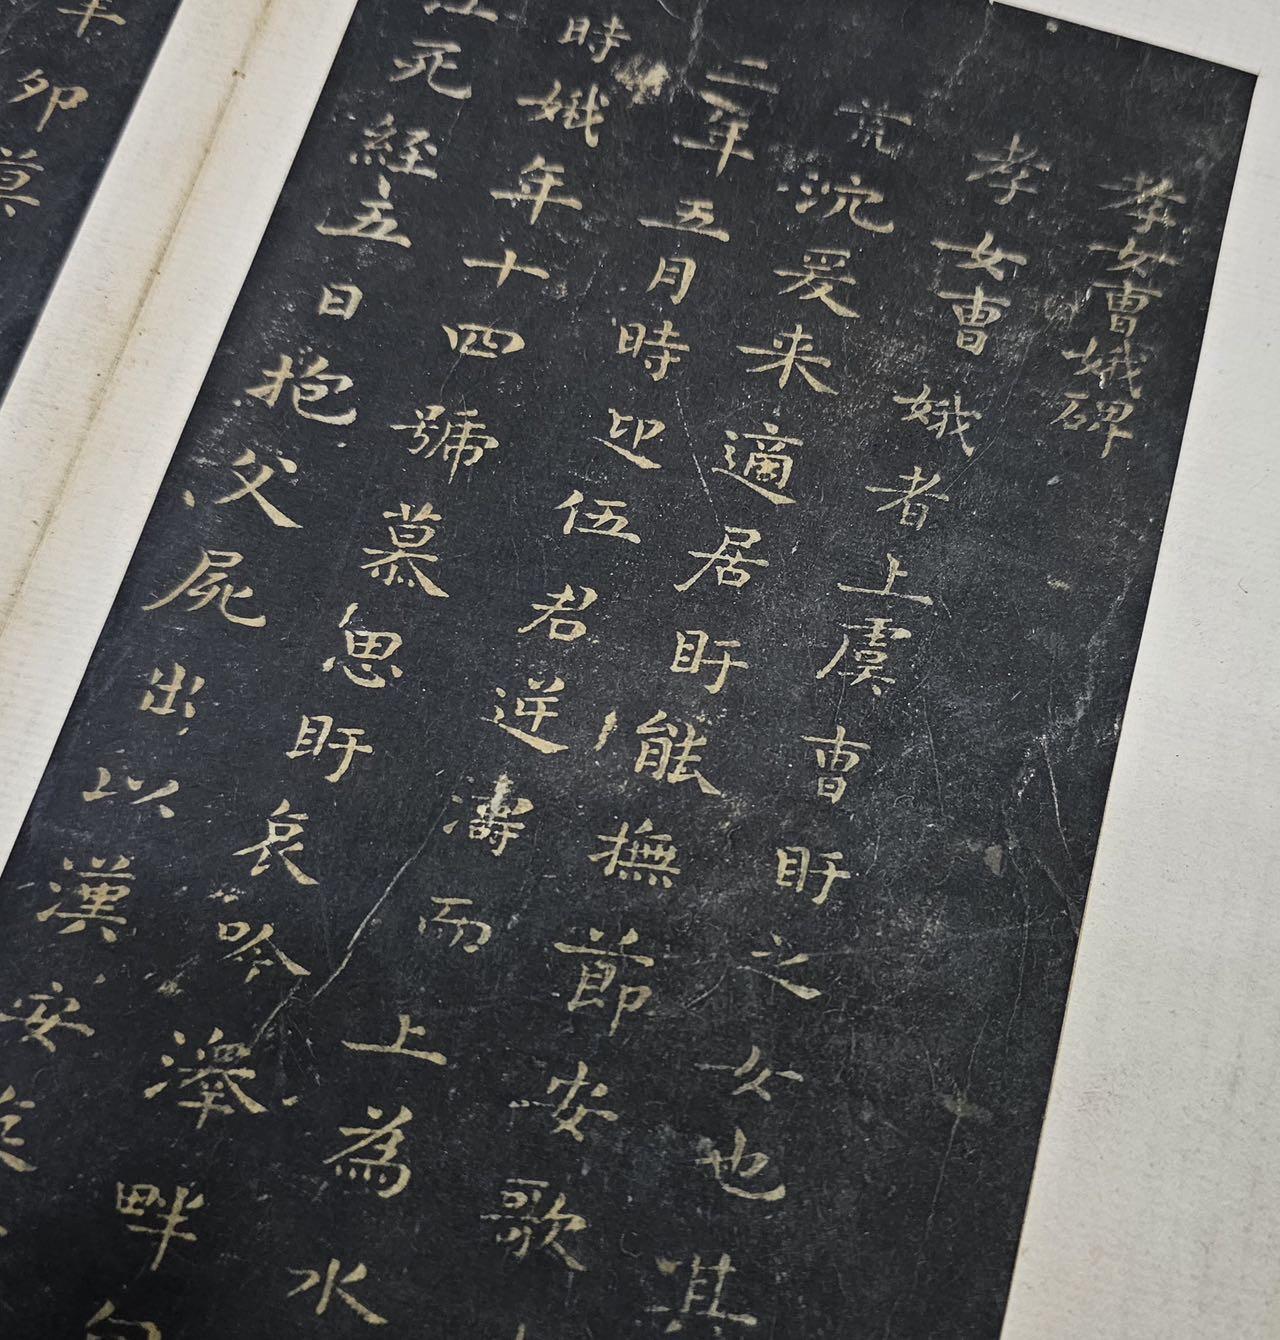 孝女曹娥碑
孝女曹娥者上虞曹盱之女也其
荒沉爰来適居盱能撫節安歌
二年五月時迎伍君逆濤而上為水
時娥年十四號慕思盱哀吟澤畔
江死經五日抱父屍出以漢安
卯莫